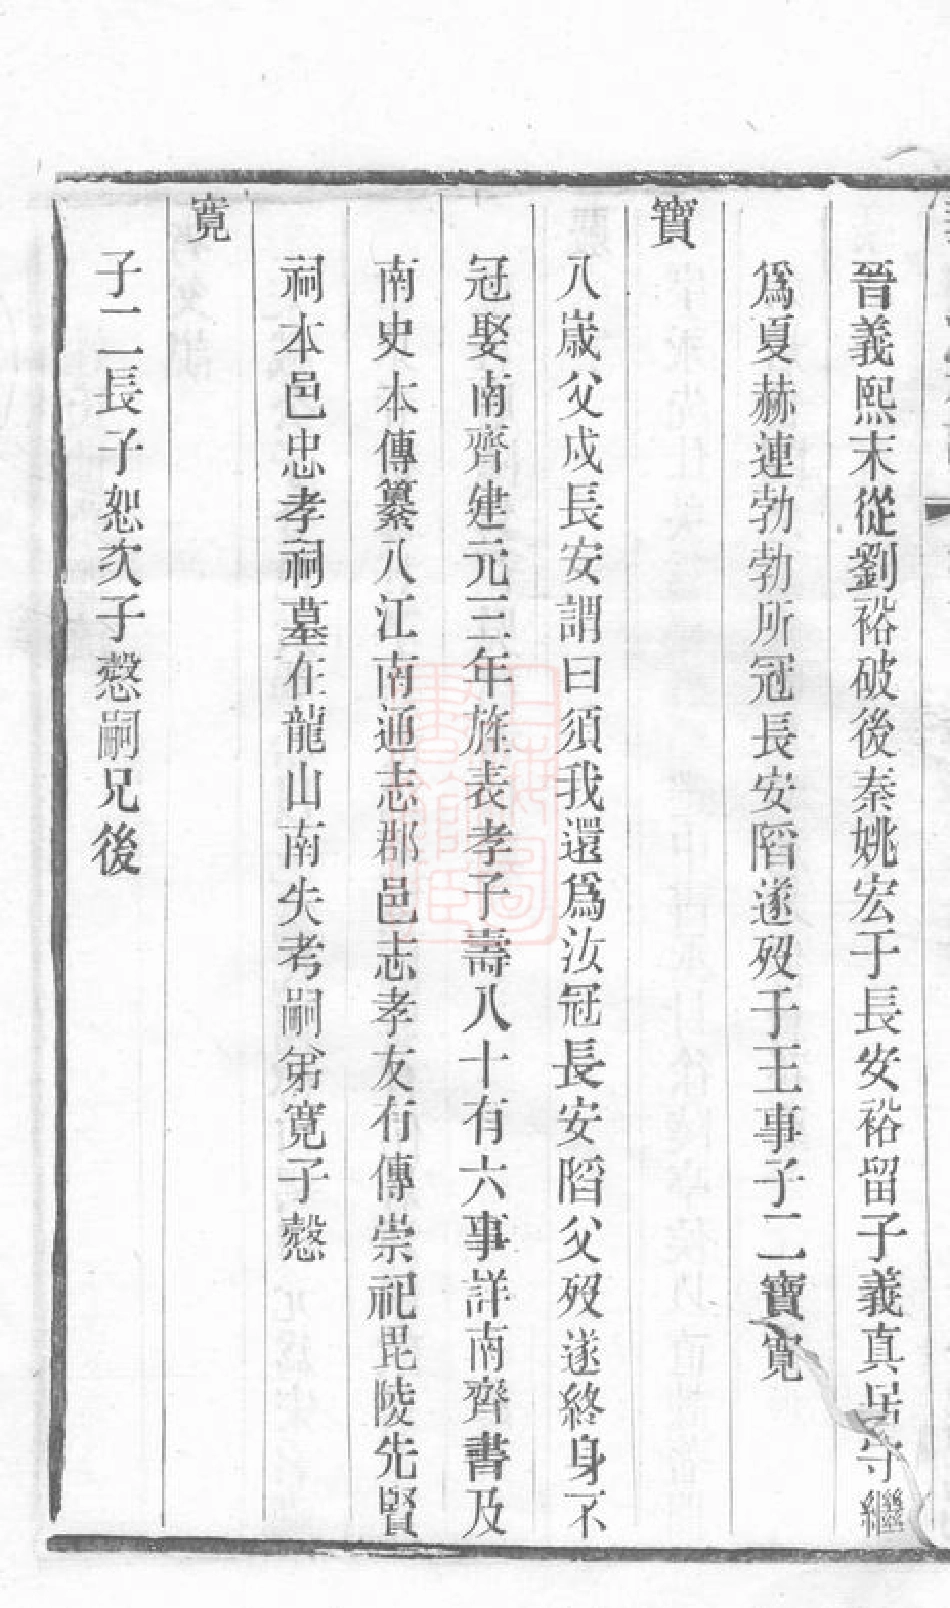 晉義熙末從劉裕破後秦姚宏于長安裕留子義真居守繼
爲夏赫連勃勃所冦長安陷遂歿于王事子二寶寬
寶
八歲父戍長安謂曰須我還爲汝冠長安陷父歿遂終身不
冠娶南齊建元三年旌表孝子壽八十有六事詳南齊書及
南史本傳纂入江南通志郡邑志孝友有傳崇祀毘陵先賢
祠本邑忠孝祠墓在龍山南失考嗣弟寬子愸
寬
子二長子恕次子愸嗣兄後